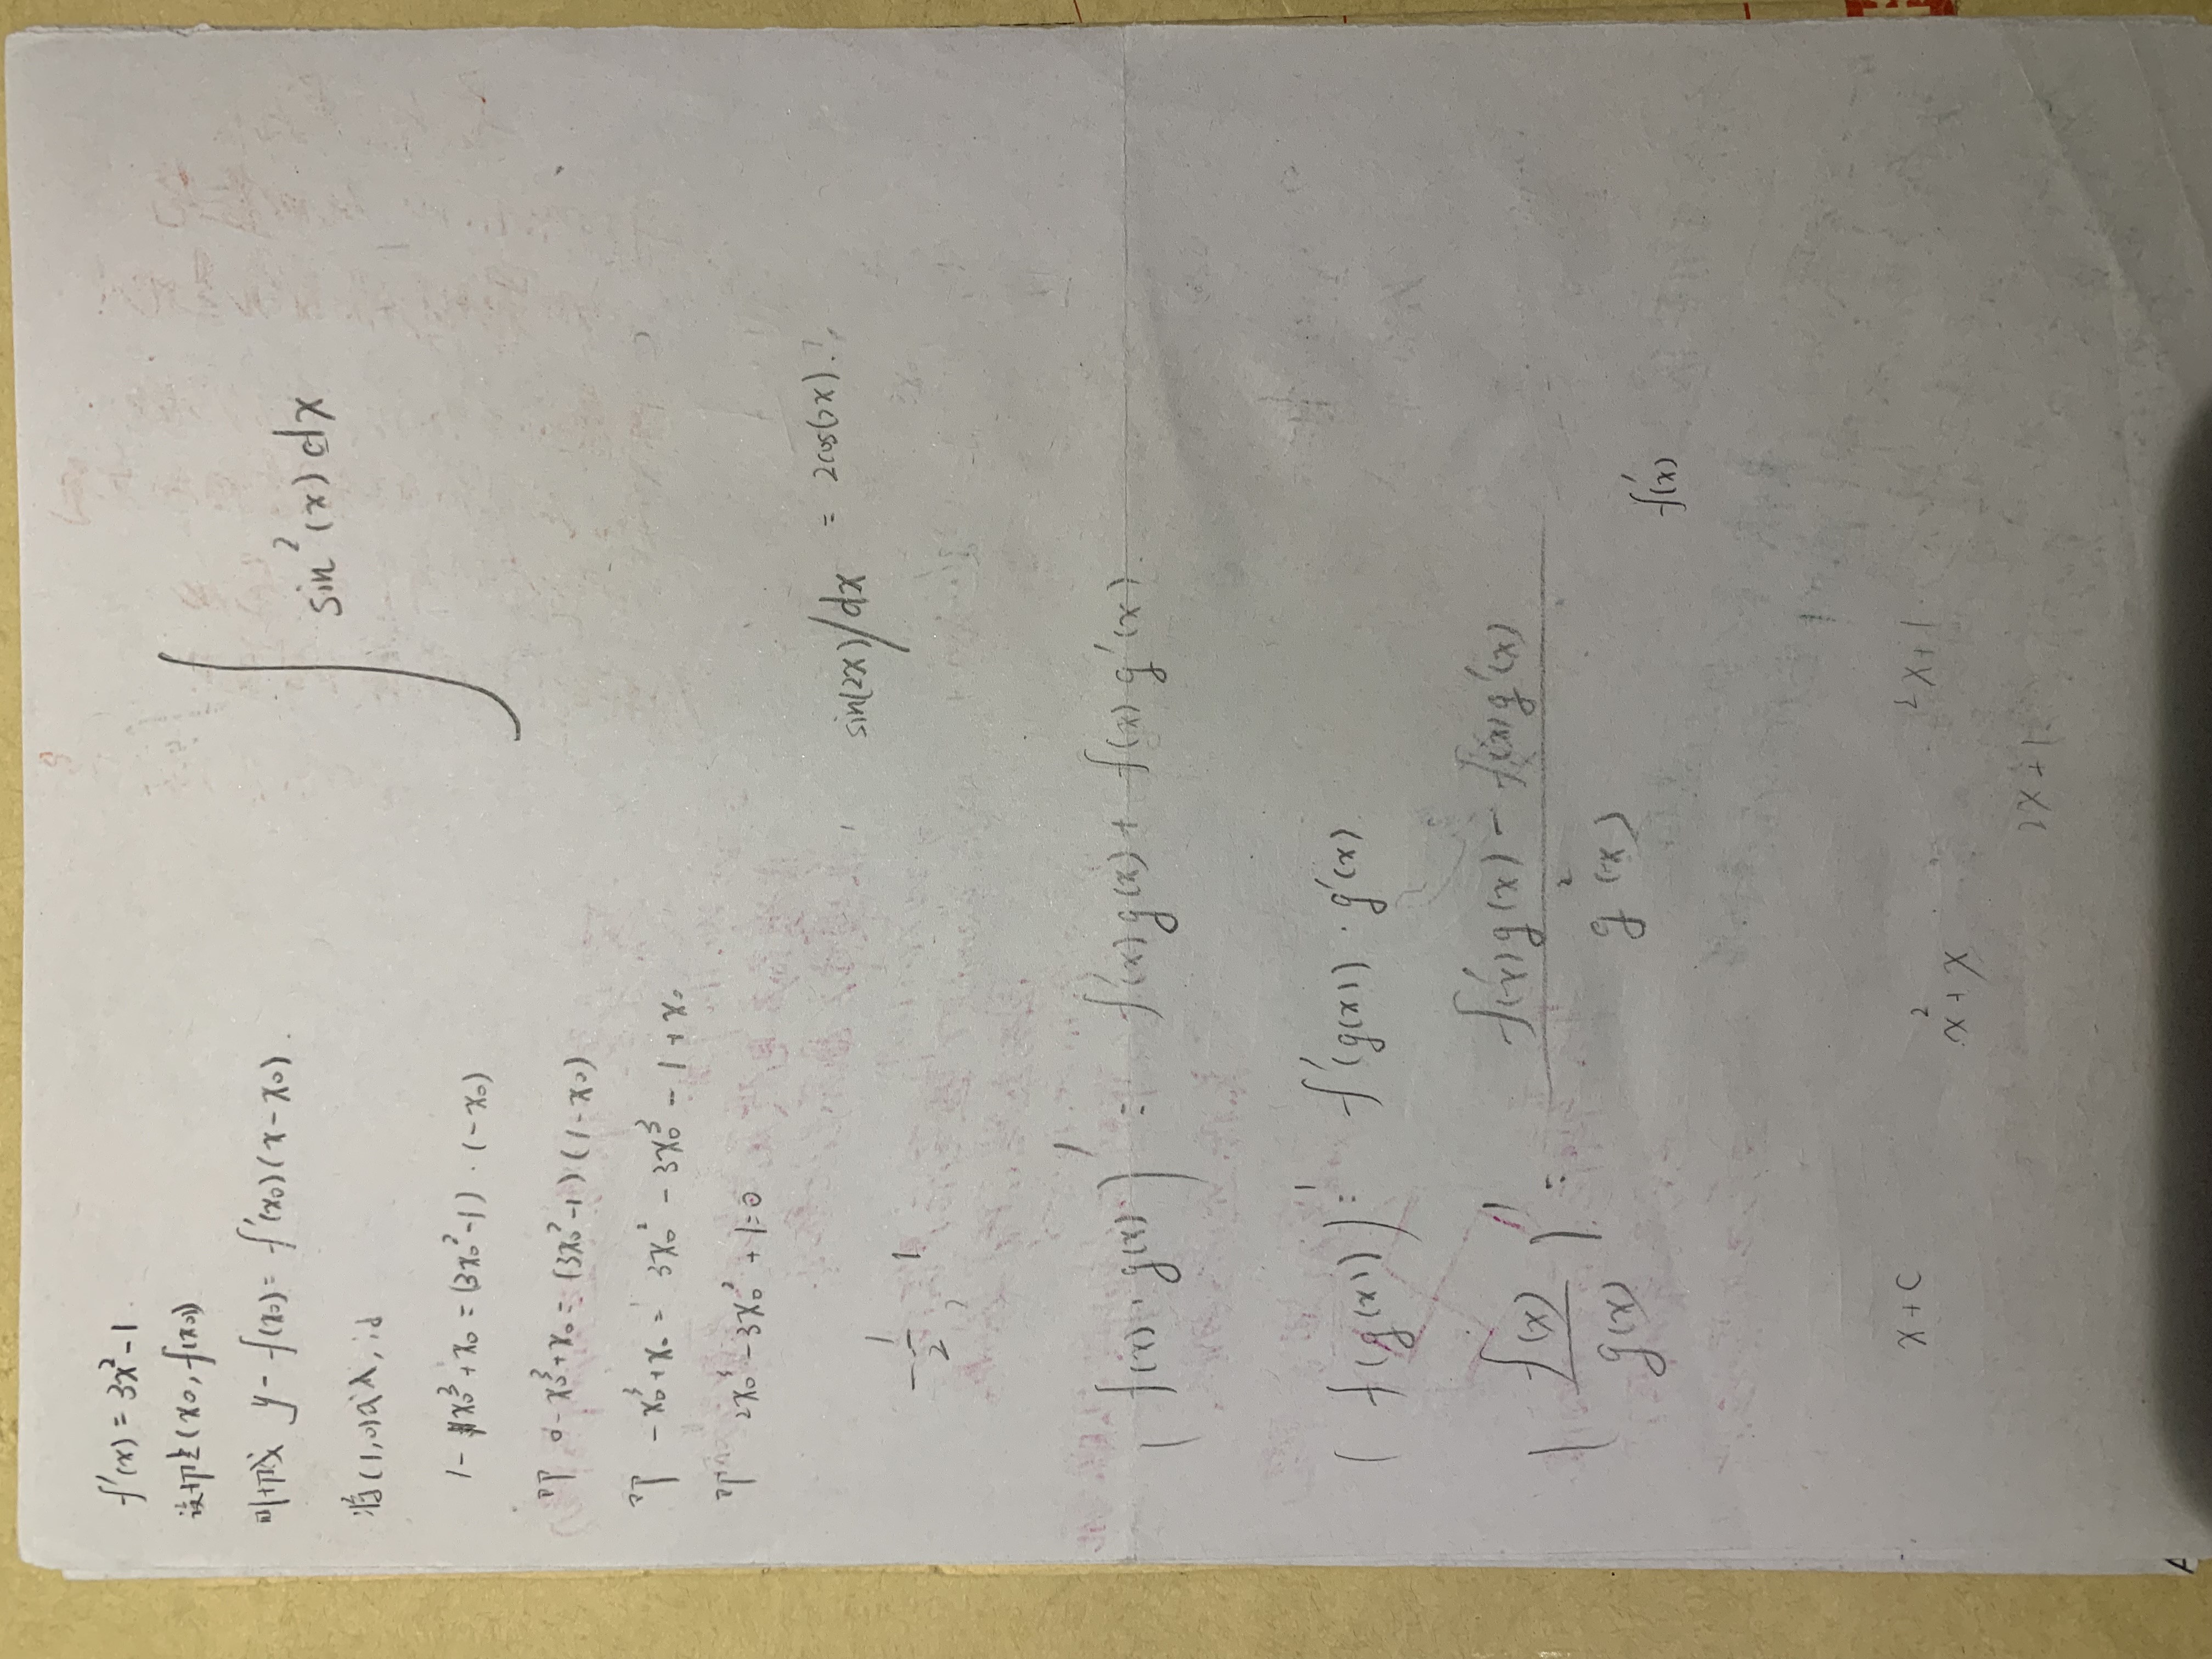 f'(x) = 3x² - 1
设切点(x₀, f(x₀))
则切线 y - f(x₀) = f'(x₀)(x - x₀).
将(1,0)代入,
1 - x₀³ + x₀ = (3x₀² - 1) · (-x₀)
即 0 - x₀³ + x₀ = (3x₀² - 1)(1 - x₀)
即 -x₀³ + x₀ = 3x₀² - 3x₀³ - 1 + x₀
即 2x₀³ - 3x₀² + 1 = 0
-1/2, 1
∫ sin²(x) dx
sin(2x)/dx = 2cos(2x).
(f(x) · g(x))' = f'(x)g(x) + f(x)g'(x).
(f(g(x)))' = f'(g(x)) · g'(x)
(f(x)/g(x))' = (f'(x)g(x) - f(x)g'(x))/g²(x)
f'(x)
x + C
x² + x
2x + 1
2x + 1